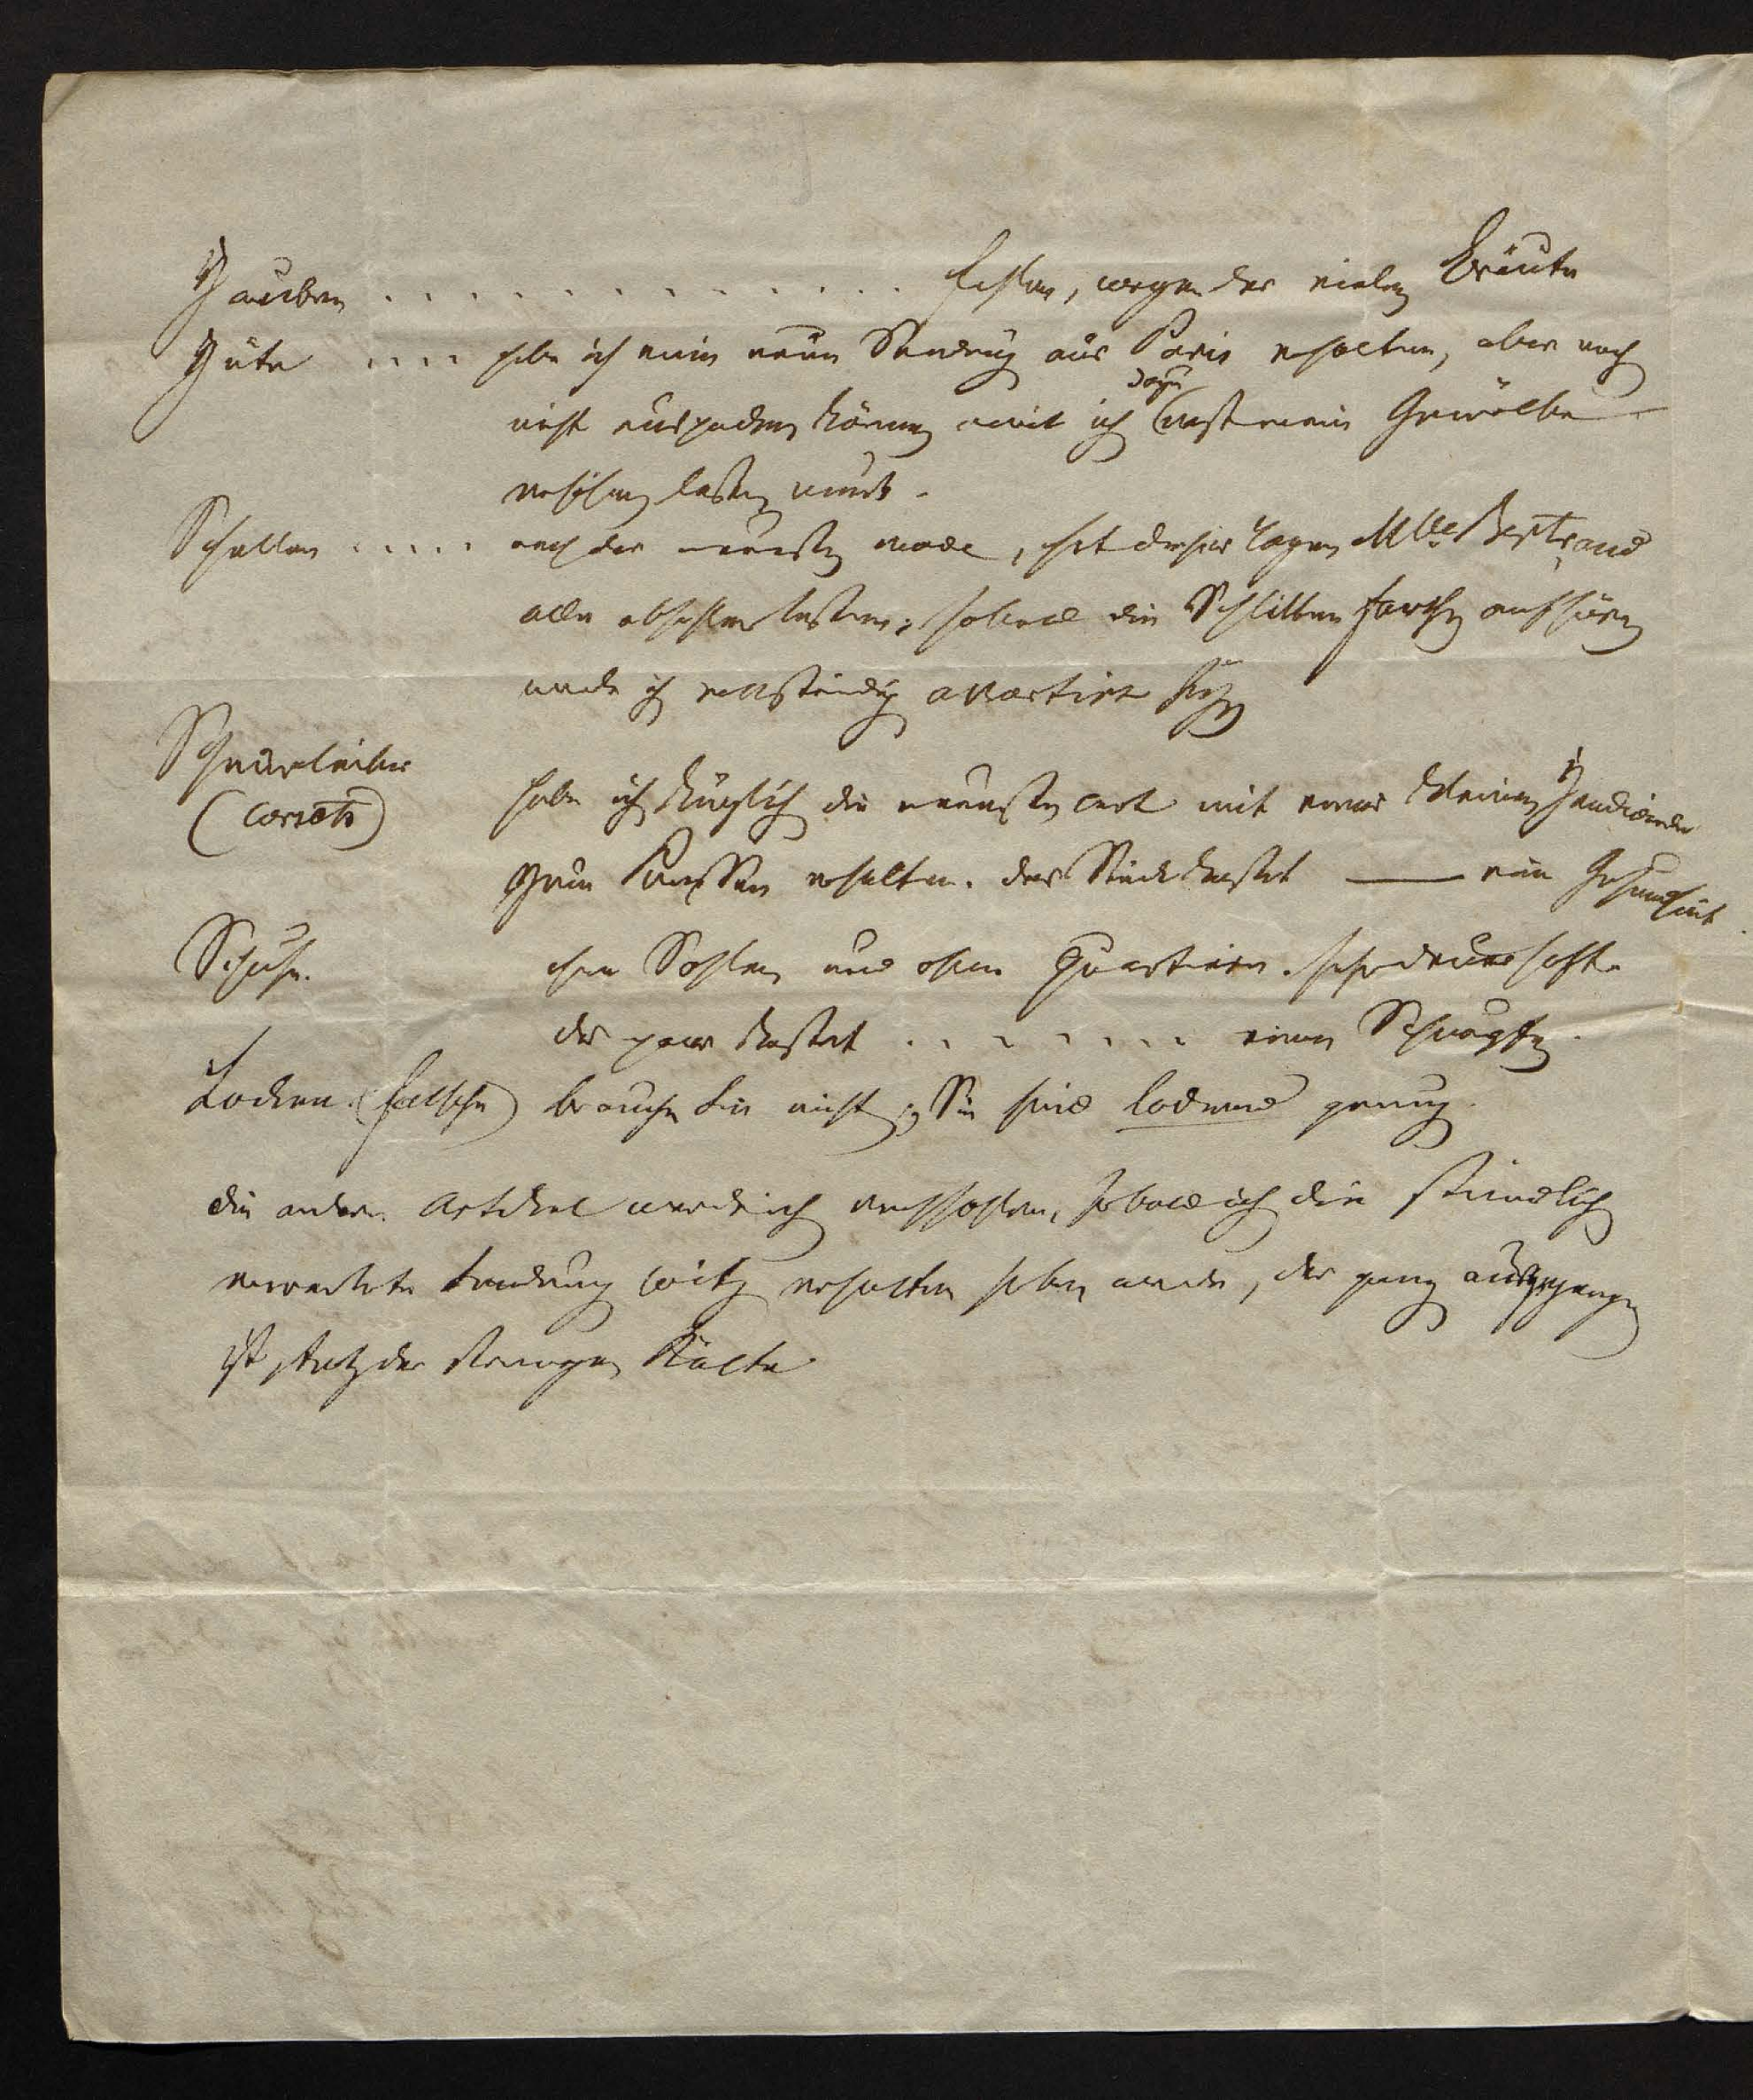 Hauben . . . . . . . . . . . . . . fehlen, wegen der vielen Bräute
Hüte . . . . habe ich eine neue Sendung aus Paris erhalten, aber noch
nicht auspacken können weil ich dazu erst mein Gewölbe
erhöhen lassen muß.
Schellen . . . . . nach der neuesten mode, hat dieser Tagen Mlle Bertrand
alle abhohlen lassen; sobald die Schlitten farthen aufhören
werde ich vollständig assortirt seyn
Schnürleiber
(Corsets)
habe ich kürzlich die neueste art mit einer kleinen
erhalten. das Stück kostet —— eine Gesundheit.
Schuhe. ohne Sohlen und ohne Quartiere. sehr dauerhaft.
das paar kostet . . . . . . . einen Schnupfen.
Locken (falsche) brauchen Sie nicht; Sie sind lockend genug.
die andern Artikel werde ich nachhohlen, sobald ich die stündlich
erwartete Sendung Witz erhalten haben werde, der ganz ausgegangen
ist, trotz der strengen Kälte